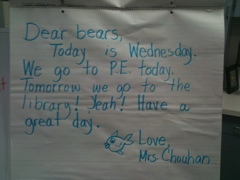 Dear bears,
Today is Wednesday.
We go to P.E. today.
Tomorrow we go to the
library! Yeah! Have a
great day.
Love,
Mrs Chouhan